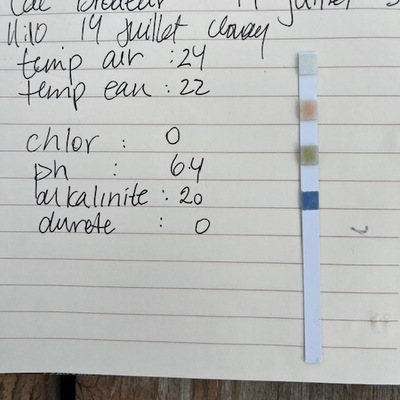 14 Juillet
11h10 14 Juillet cloudy
temp air : 24
temp eau : 22
chlor : 0
ph : 6.4
alkalinite : 20
durete : 0